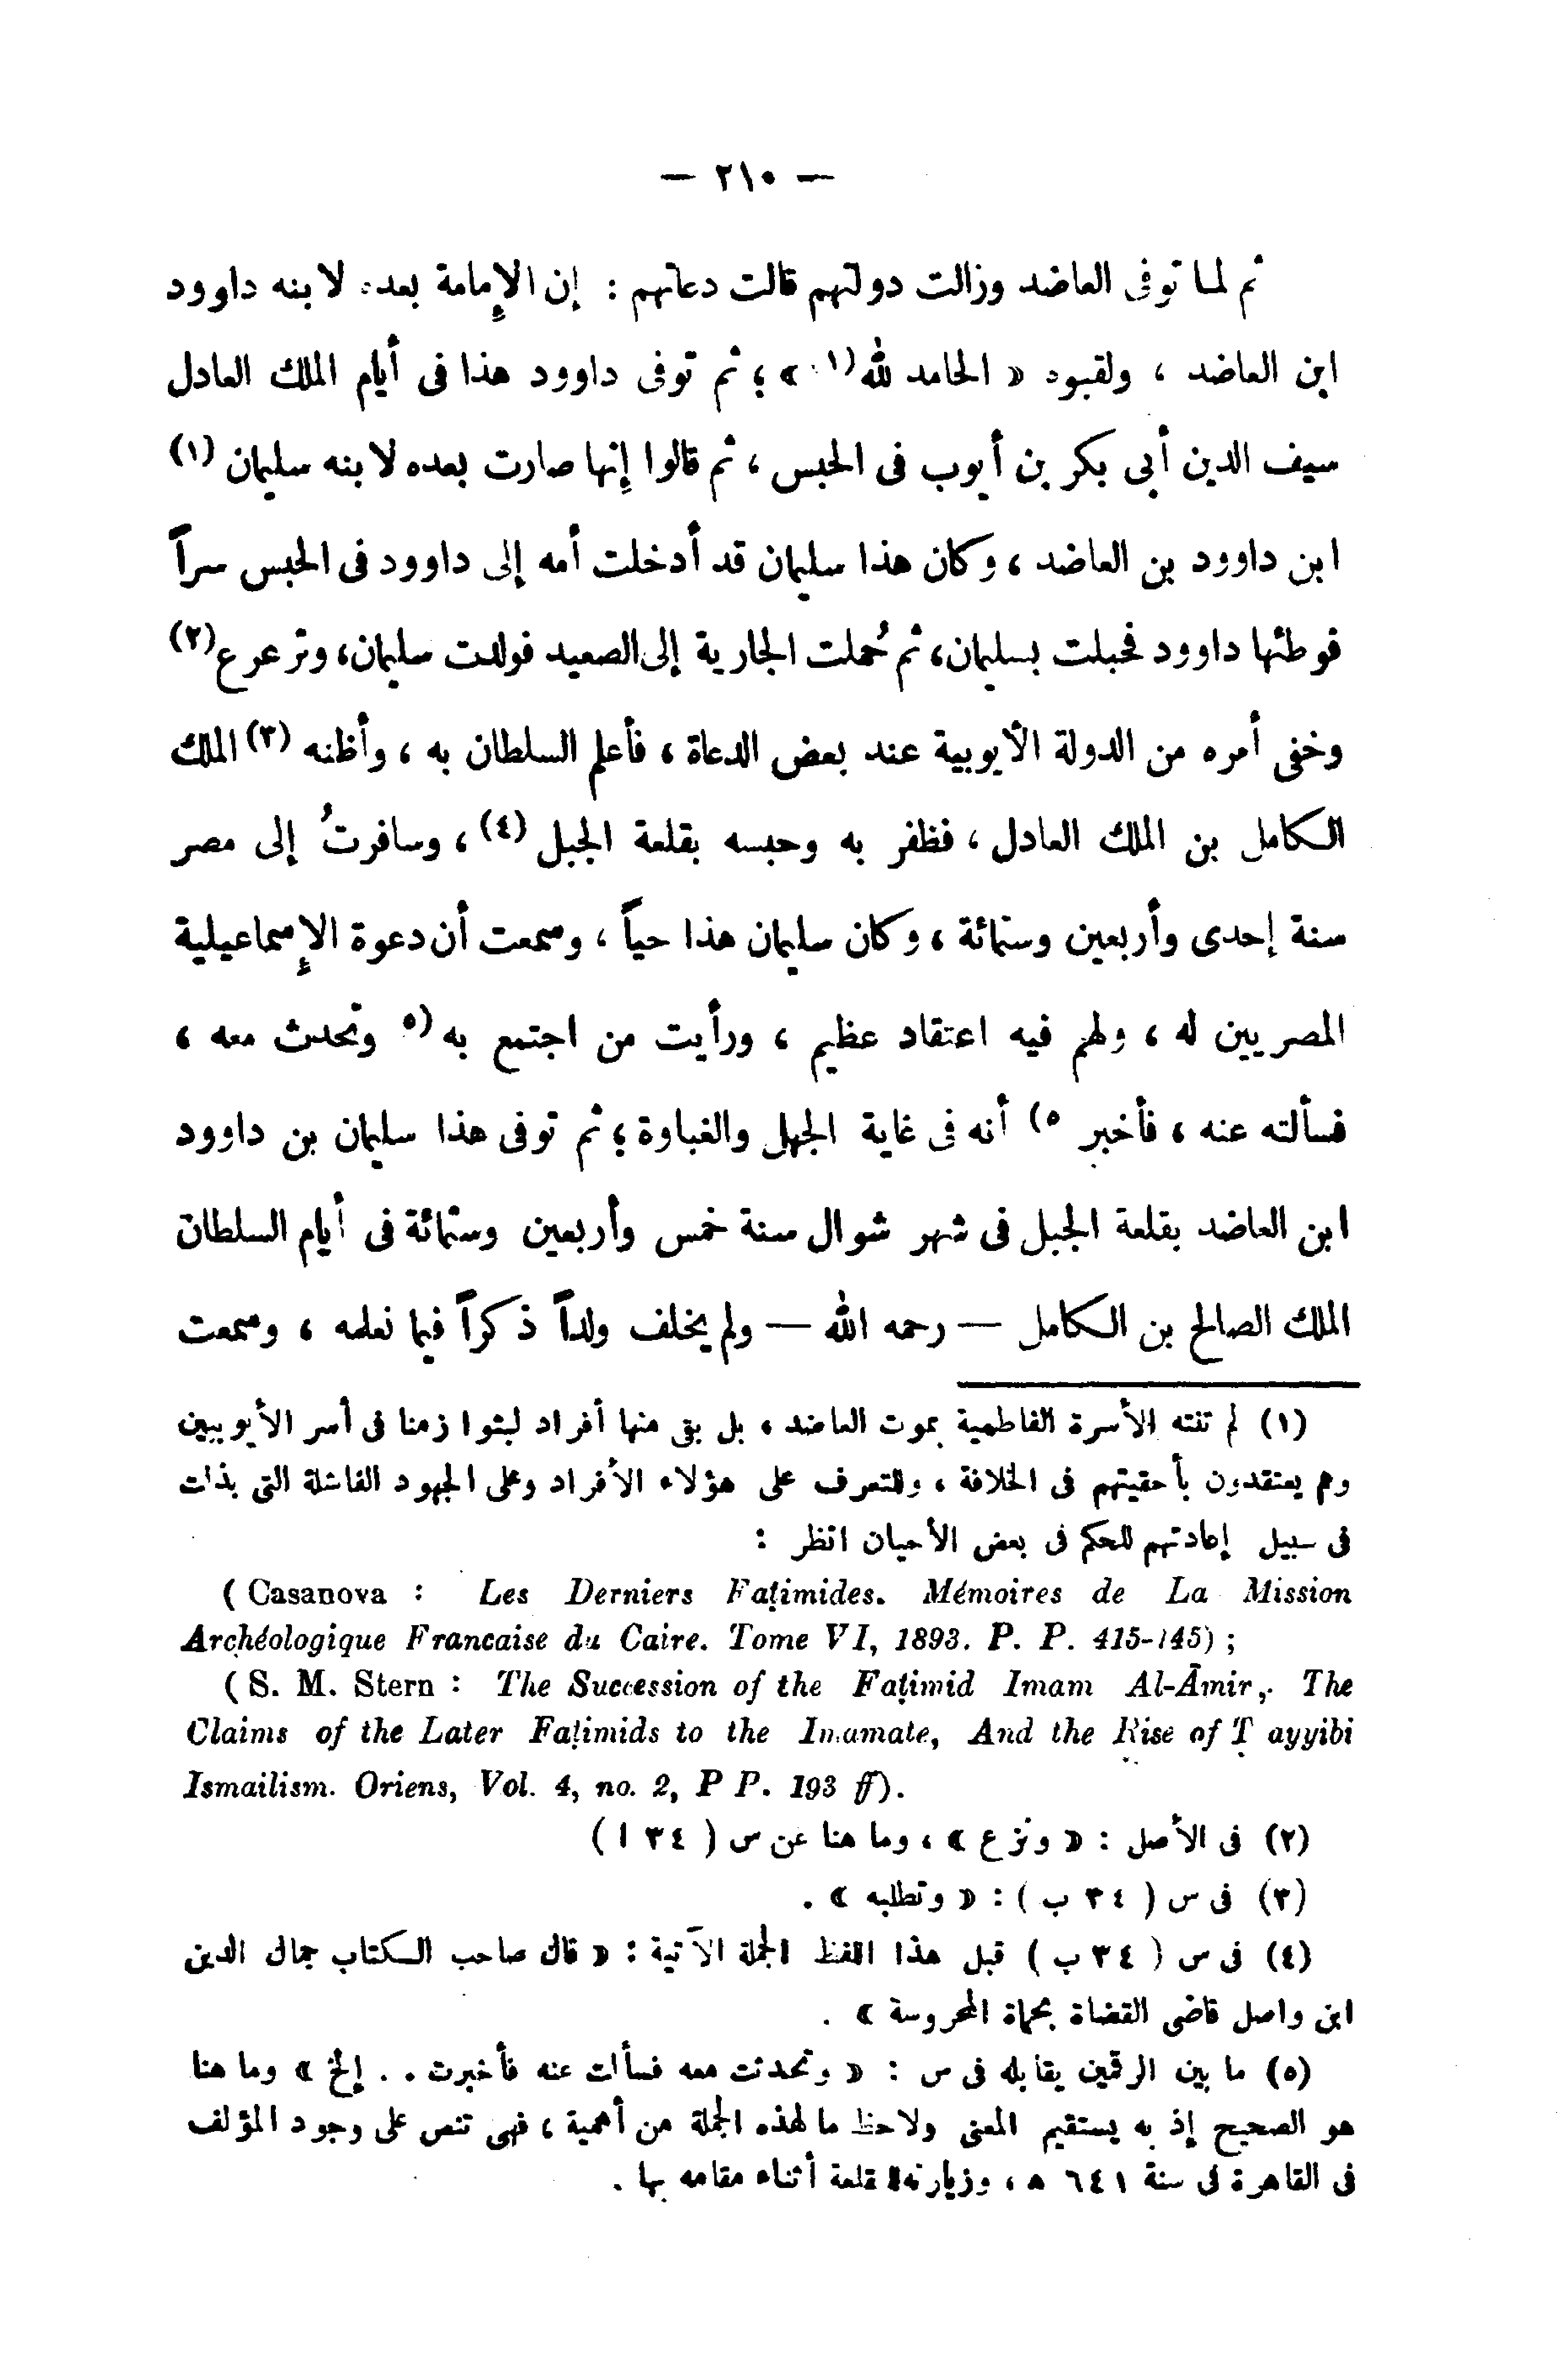 — ٢١٠ —
ثم لما توفى العاضد وزالت دولتهم قالت دعاتهم : إن الإمامة بعده لابنه داوود
ابن العاضد ، ولقبوه « الحامد لله(١) » ؛ ثم توفى داوود هذا فى أيام الملك العادل
سيف الدين أبى بكر بن أيوب فى الحبس ، ثم قالوا إنها صارت بعده لابنه سليمان (١)
ابن داوود بن العاضد ، وكان هذا سليمان قد أدخلت أمه إلى داوود فى الحبس سراً
فوطئها داوود فحبلت بسليمان، ثم حُملت الجارية إلى الصعيد فولدت سليمان، وترعرع (٢)
وخفى أمره من الدولة الأيوبية عند بعض الدعاة ، فأعلم السلطان به ، وأظنه (٣) الملك
الكامل بن الملك العادل ، فظفر به وحبسه بقلعة الجبل (٤) ، وسافرتُ إلى مصر
سنة إحدى وأربعين وستمائة ، وكان سليمان هذا حياً ، وسمعت أن دعوة الإسماعيلية
المصريين له ، ولهم فيه اعتقاد عظيم ، ورأيت من اجتمع به (٥ وتحدث معه ،
فسألته عنه ، فأخبر ٥) أنه فى غاية الجهل والغباوة ؛ ثم توفى هذا سليمان بن داوود
ابن العاضد بقلعة الجبل فى شهر شوال سنة خمس وأربعين وستمائة فى أيام السلطان
الملك الصالح بن الكامل — رحمه الله — ولم يخلف ولداً ذكراً فيما نعلمه ، وسمعت
(١) لم تنته الأسرة الفاطمية بموت العاضد ، بل بقى منها أفراد لبثوا زمنا فى أسر الأيوبيين
وهم يعتقدون بأحقيتهم فى الخلافة ، وللتعرف على هؤلاء الأفراد وعلى الجهود الفاشلة التى بذلت
فى سبيل إعادتهم للحكم فى بعض الأحيان انظر :
( Casanova : Les Derniers Faṭimides. Mémoires de La Mission
Archéologique Francaise du Caire. Tome VI, 1893. P. P. 415-445) ;
( S. M. Stern : The Succession of the Faṭimid Imam Al-Āmir, The
Claims of the Later Faṭimids to the Imamate, And the Rise of Ṭ ayyibi
Ismailism. Oriens, Vol. 4, no. 2, P P. 193 ff).
(٢) فى الأصل : « ونزع » ، وما هنا عن س ( ٣٤ ا )
(٣) فى س ( ٣٤ ب ) : « وتطلبه » .
(٤) فى س ( ٣٤ ب ) قبل هذا اللفظ الجملة الآتية : « قال صاحب الكتاب جمال الدين
ابن واصل قاضى القضاة بحماة المحروسة » .
(٥) ما بين الرقمين يقابله فى س : « وتحدثت معه فسألت عنه فأخبرت . . إلخ » وما هنا
هو الصحيح إذ به يستقيم المعنى ولاحظ ما لهذه الجملة من أهمية ، فهى تنص على وجود المؤلف
فى القاهرة فى سنة ٦٤١ ه ، وزيارته القلعة أثناء مقامه بها .